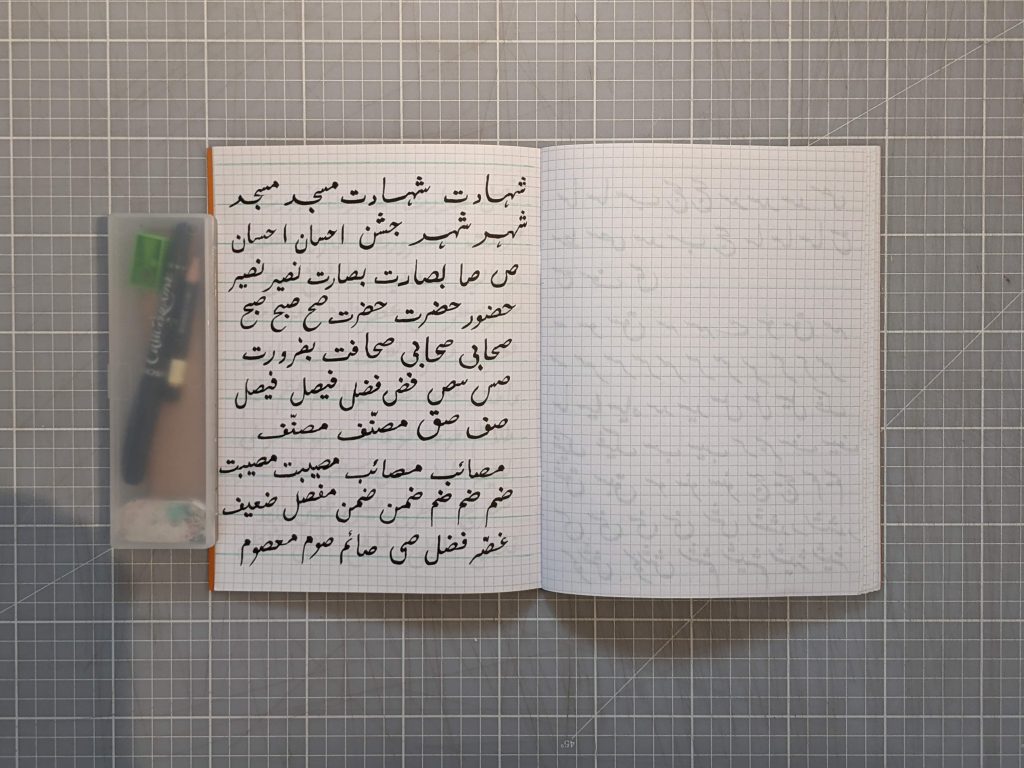 شہادت شہادت مسجد مسجد
شہر شہر جشن احسان احسان
ص صا بصارت بصارت نصیر نصیر
حضور حضرت حضرت صح صبح صبح
صحابی صحابی صحافت بضرورت
صس سص فض فضل فیصل فیصل
صف صق مصنّف مصنّف
مصائب مصائب مصیبت مصیبت
ضم ضم ضم ضمن ضمن مفصل ضعیف
فضل صی صائم صوم معصوم
45°